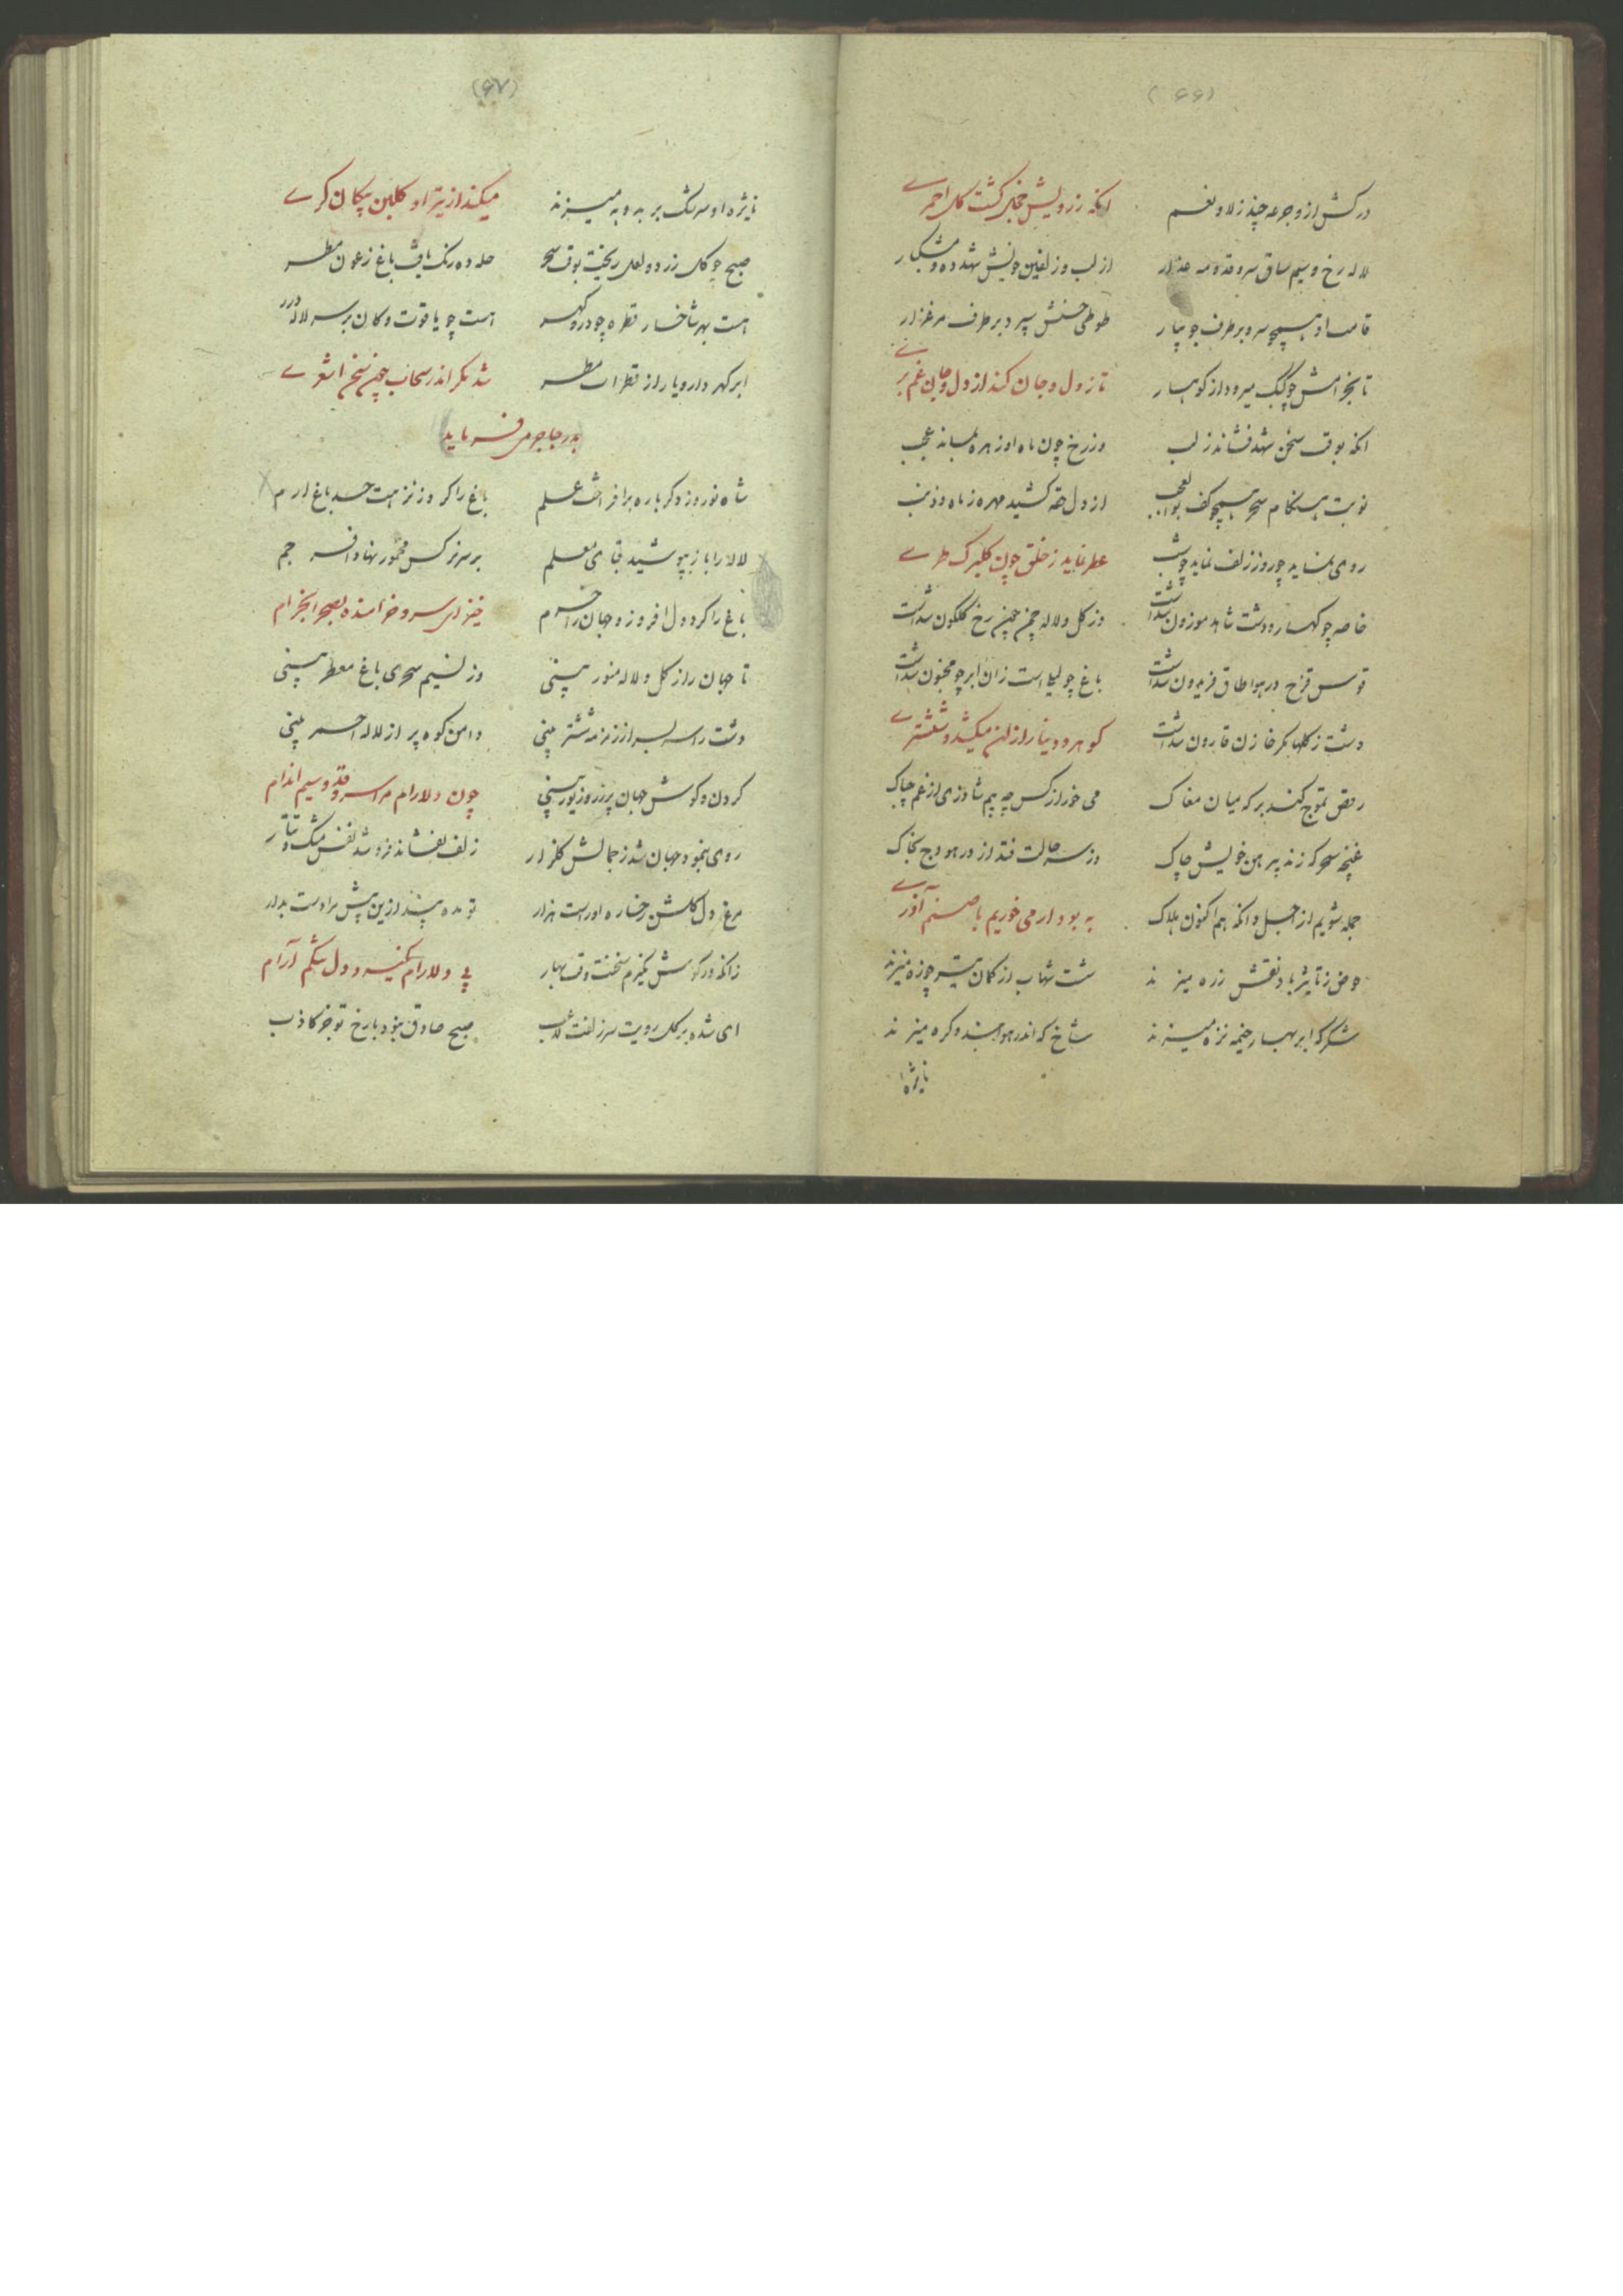 (۶۶)
درکش ازو جرعه چند ز لا و نعم آنکه ز رویش خجل گشت گل احمرے
لاله رخ و سیم ساق سرو قد و مه عذار از لب و زلفین خویش شهد ده و مشکبار
قامت او همچو سرو بر طرف جویبار طوطی حسنش پرد بر طرف مرغزار
تا بخرامش چو کبک میرود از کوهسار تا ز دل و جان کند از دل و جان غم برے
آنکه بوقت سخن شهد فشاند ز لب وز رخ چون ماه او زهره بماند عجب
نوبت هنگام سحر همچو کف بوالعجب از دل حقه کشید مهره ز ماه و ذنب
روی نماید چو روز زلف نماید چو شب عطر نماید ز خلق چون گلبرگ طرے
خاصه چو کهسار و دشت شاهد موزون شداشت وز گل و لاله چمن چمن رخ گلگون شداشت
قوس قزح در هوا طاق فریدون شداشت باغ چو لیلی است زان ابر چو مجنون شداشت
دشت ز گلها مگر خازن قارون شداشت گوهر و دینار از آن میکشد و ششترے
رقص تموج کند برکه میان مغاک می خور از کس چه بیم شاد زی از غم چاک
غنچه سحر که زند پیرهن خویش چاک وز سه حالت فتد از در هودج بخاک
جمله شویم از اجل دانکه هم اکنون هلاک به بود ار می خوریم با صنم آذرے
حوض ز تاثیر باد نقش زره میزند شست شهاب از کمان تیر چو زه میزند
شکر که ابر بهار خیمه نزه میزند شاخ که اندر هوا بند و گره میزند
نایژه
(۶۷)
نایژه او سرشک بر به و به میزند میکند از تیر او گلبن پیکان گرے
صبح چو گل زرد و لعل ریخت بوقت سحر حله ده رنگ یافت باغ ز عون مطر
هست بهر شاخسار قطره چو در و گهر هست چو یاقوت و کان بر سر لاله درر
ابر گهر دارد یا راز قطرات مطر شد مگر اندر سحاب چون سخن اشعرے
بدر جاجرمی فرماید
شاه نوروز دگر باره برافراشت علم باغ را کرد ز نزهت حسد باغ ارم
لاله را باز بپوشید قبای معلم بر سر نرگس مخمور نهاد افسر جم
باغ را کرد دل افروز و جهان را خرم خیز ای سرو خرامنده بصحرا بخرام
تا جهان را ز گل و لاله منور بینی وز نسیم سحری باغ معطر بینی
دشت را سر بسر از زمزمه ششتر بینی دامن کوه پر از لاله احمر بینی
گردن و گوش جهان پر زر و زیور بینی چون دلارام مرا سرو قد و سیم اندام
روی بنمود جهان شد ز جمالش گلزار زلف بفشاند فرو شد نفس مشک تتار
مرغ دل گلشن رخساره او راست هزار تو مده پند ازین پیش مرا دست بدار
زانکه در گوش نگیرم سخنت وقت بهار بے دلارام نگیرد دل تنگم آرام
ای شده بر گل رویت سر زلفت لاعب صبح صادق بنود با رخ تو جز کاذب